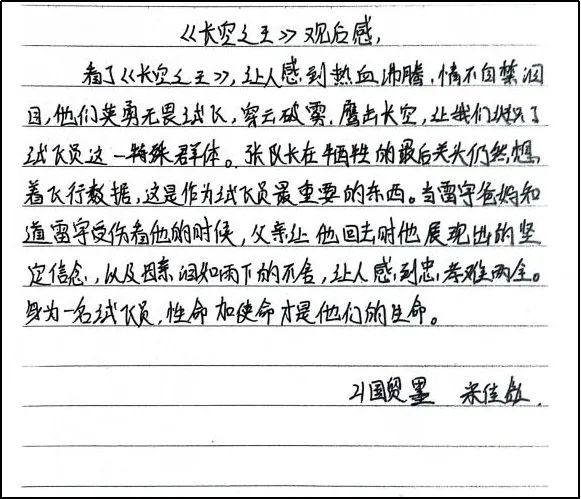 《长空之王》观后感,
看了《长空之王》,让人感到热血沸腾,情不自禁泪
目,他们英勇无畏试飞,穿云破雾,鹰击长空,让我们认识了
试飞员这一特殊群体。张队长在牺牲的最后关头仍然想
着飞行数据,这是作为试飞员最重要的东西。当雷宇爸妈知
道雷宇受伤看他的时候,父亲让他回去时他展现出的坚
定信念,以及母亲泪如雨下的不舍,让人感到忠孝难两全。
身为一名试飞员,性命加使命才是他们的生命。
21国贸 宋佳